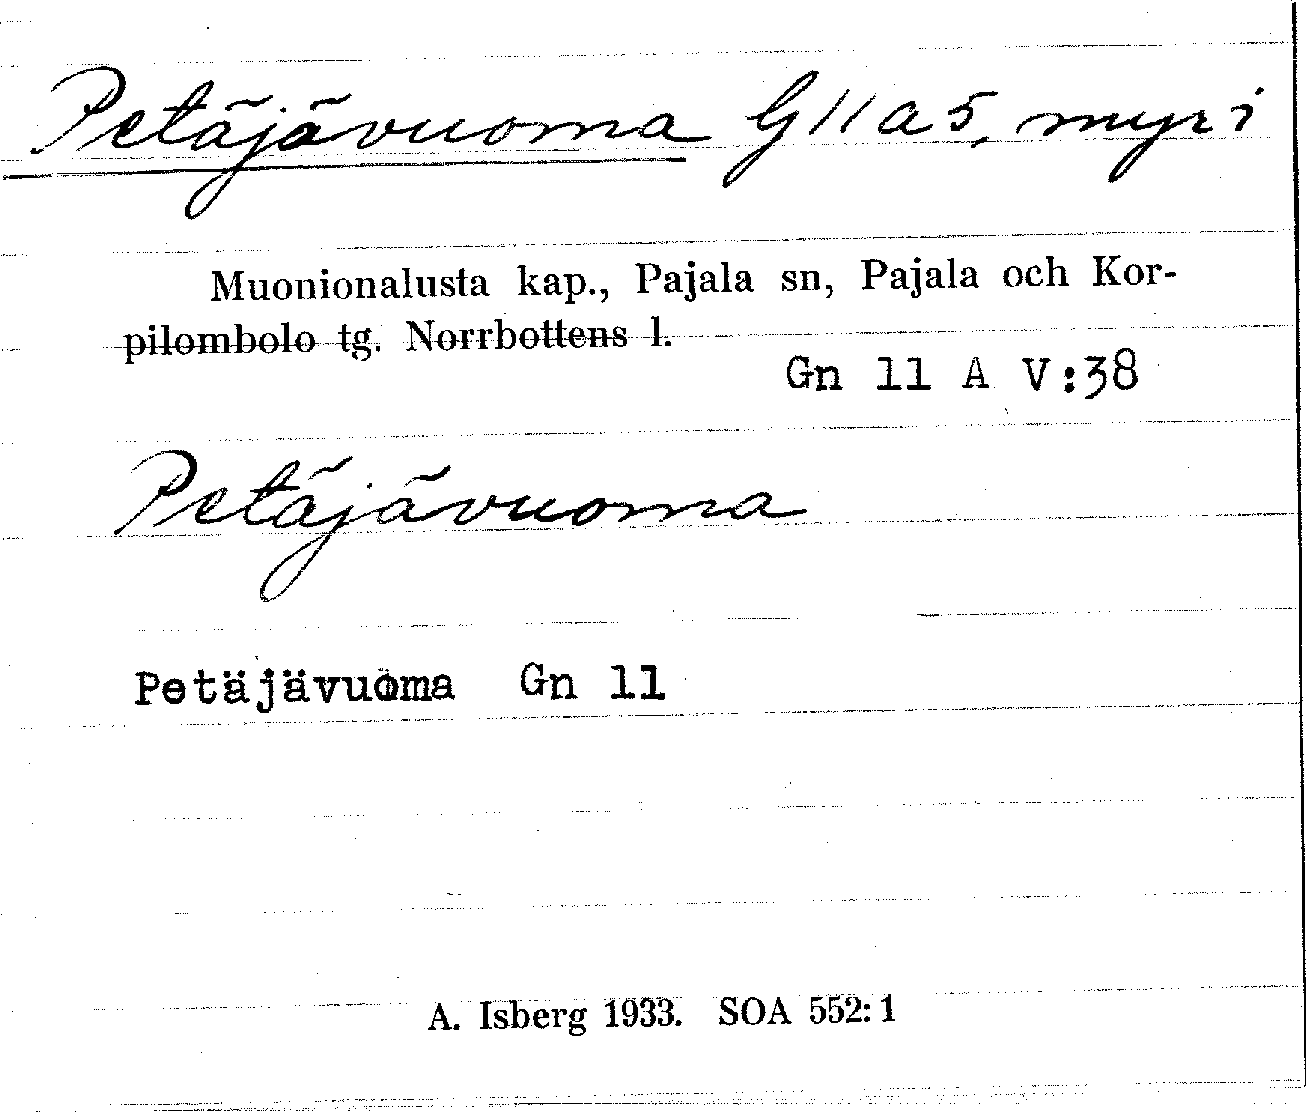 Petäjävuoma G 11 a 5, myr i
Muonionalusta kap., Pajala sn, Pajala och Kor-
pilombolo tg. Norrbottens l.
Gn 11 A V:38
Petäjävuoma
Petäjävuoma Gn 11
A. Isberg 1933. SOA 552:1